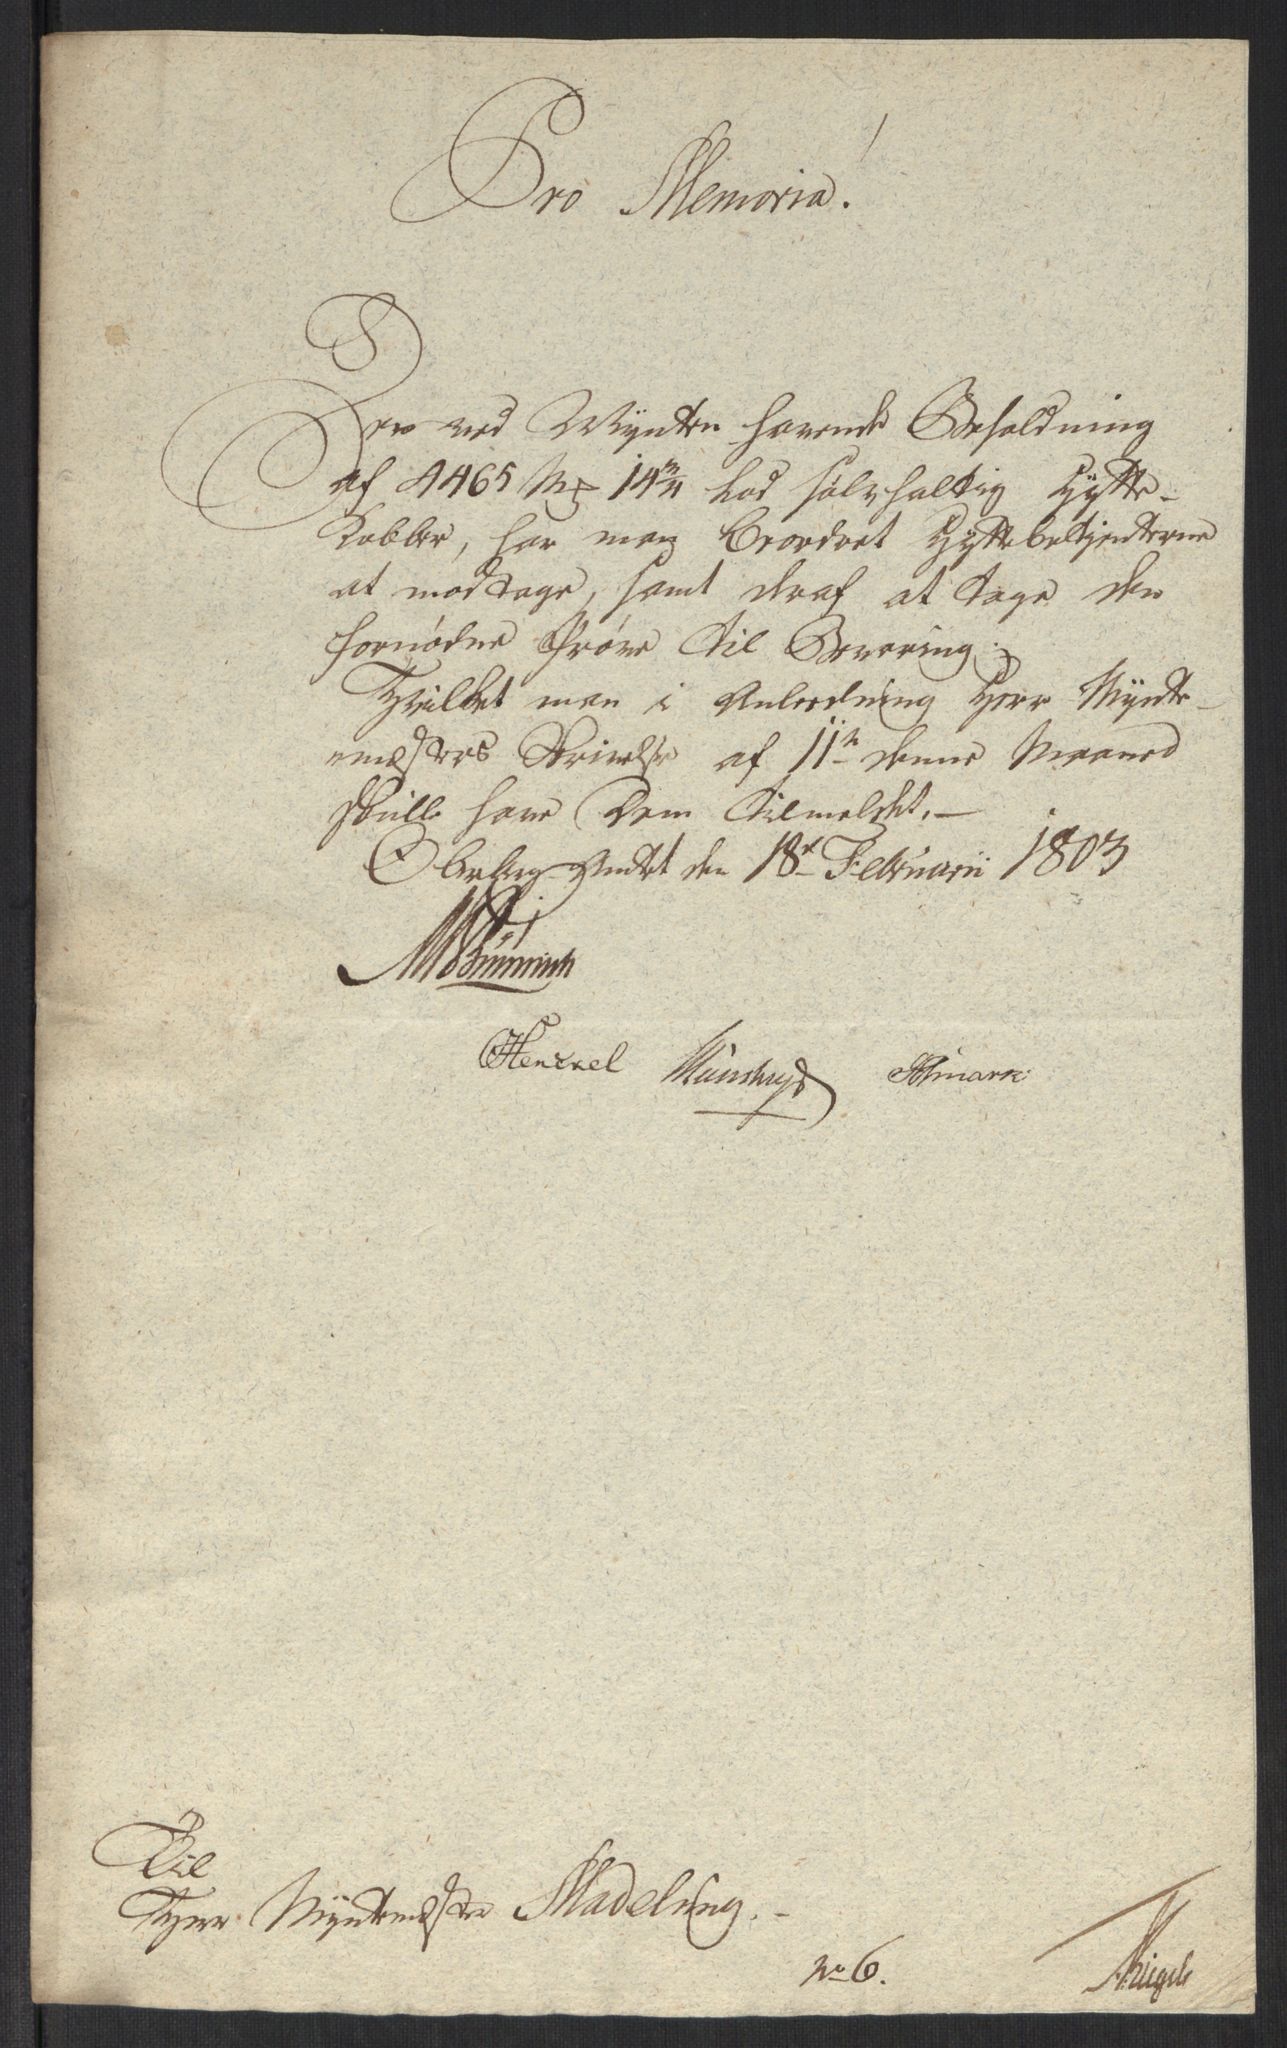 Pro Memoria!
Den ved Mÿnten havende Beholdning
af 4465 Mk 14 3/4 Lod sølvholdig Hÿtte-
Kobber, har man beordret Hÿttebetjenterne
at modtage, samt deraf at tage den
fornødne Prøve til Bevaring;
Hvilket man i Anledning Herr Mÿnt-
mesters Skrivelse af 11te denne Maaned
skulle have Dem tilmeldet. —
Oberberg Amtet den 18de Februarii 1803
Henckel Münster Esmark
Til
Herr Mÿntmester Madelung. -
No 6.